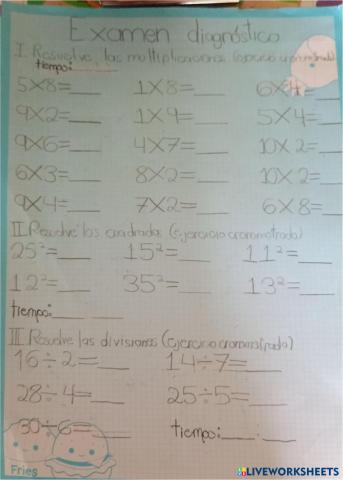 Examen diagnóstico
I. Resuelve las multiplicaciones (ejercicio cronometrado)
tiempo:
5X8=___ 1X8=___ 6X4=___
9X2=___ 1X9=___ 5X4=___
9X6=___ 4X7=___ 10X2=___
6X3=___ 8X2=___ 10X2=___
9X4=___ 7X2=___ 6X8=___
II. Resuelve los cuadrados (Ejercicio cronometrado)
25²=___ 15²=___ 11²=___
12²=___ 35²=___ 13²=___
tiempo:___ ___
III. Resuelve las divisiones (Ejercicio cronometrado)
16÷2=___ 14÷7=___
28÷4=___ 25÷5=___
30÷6=___ tiempo:___:___
Fries
LIVEWORKSHEETS